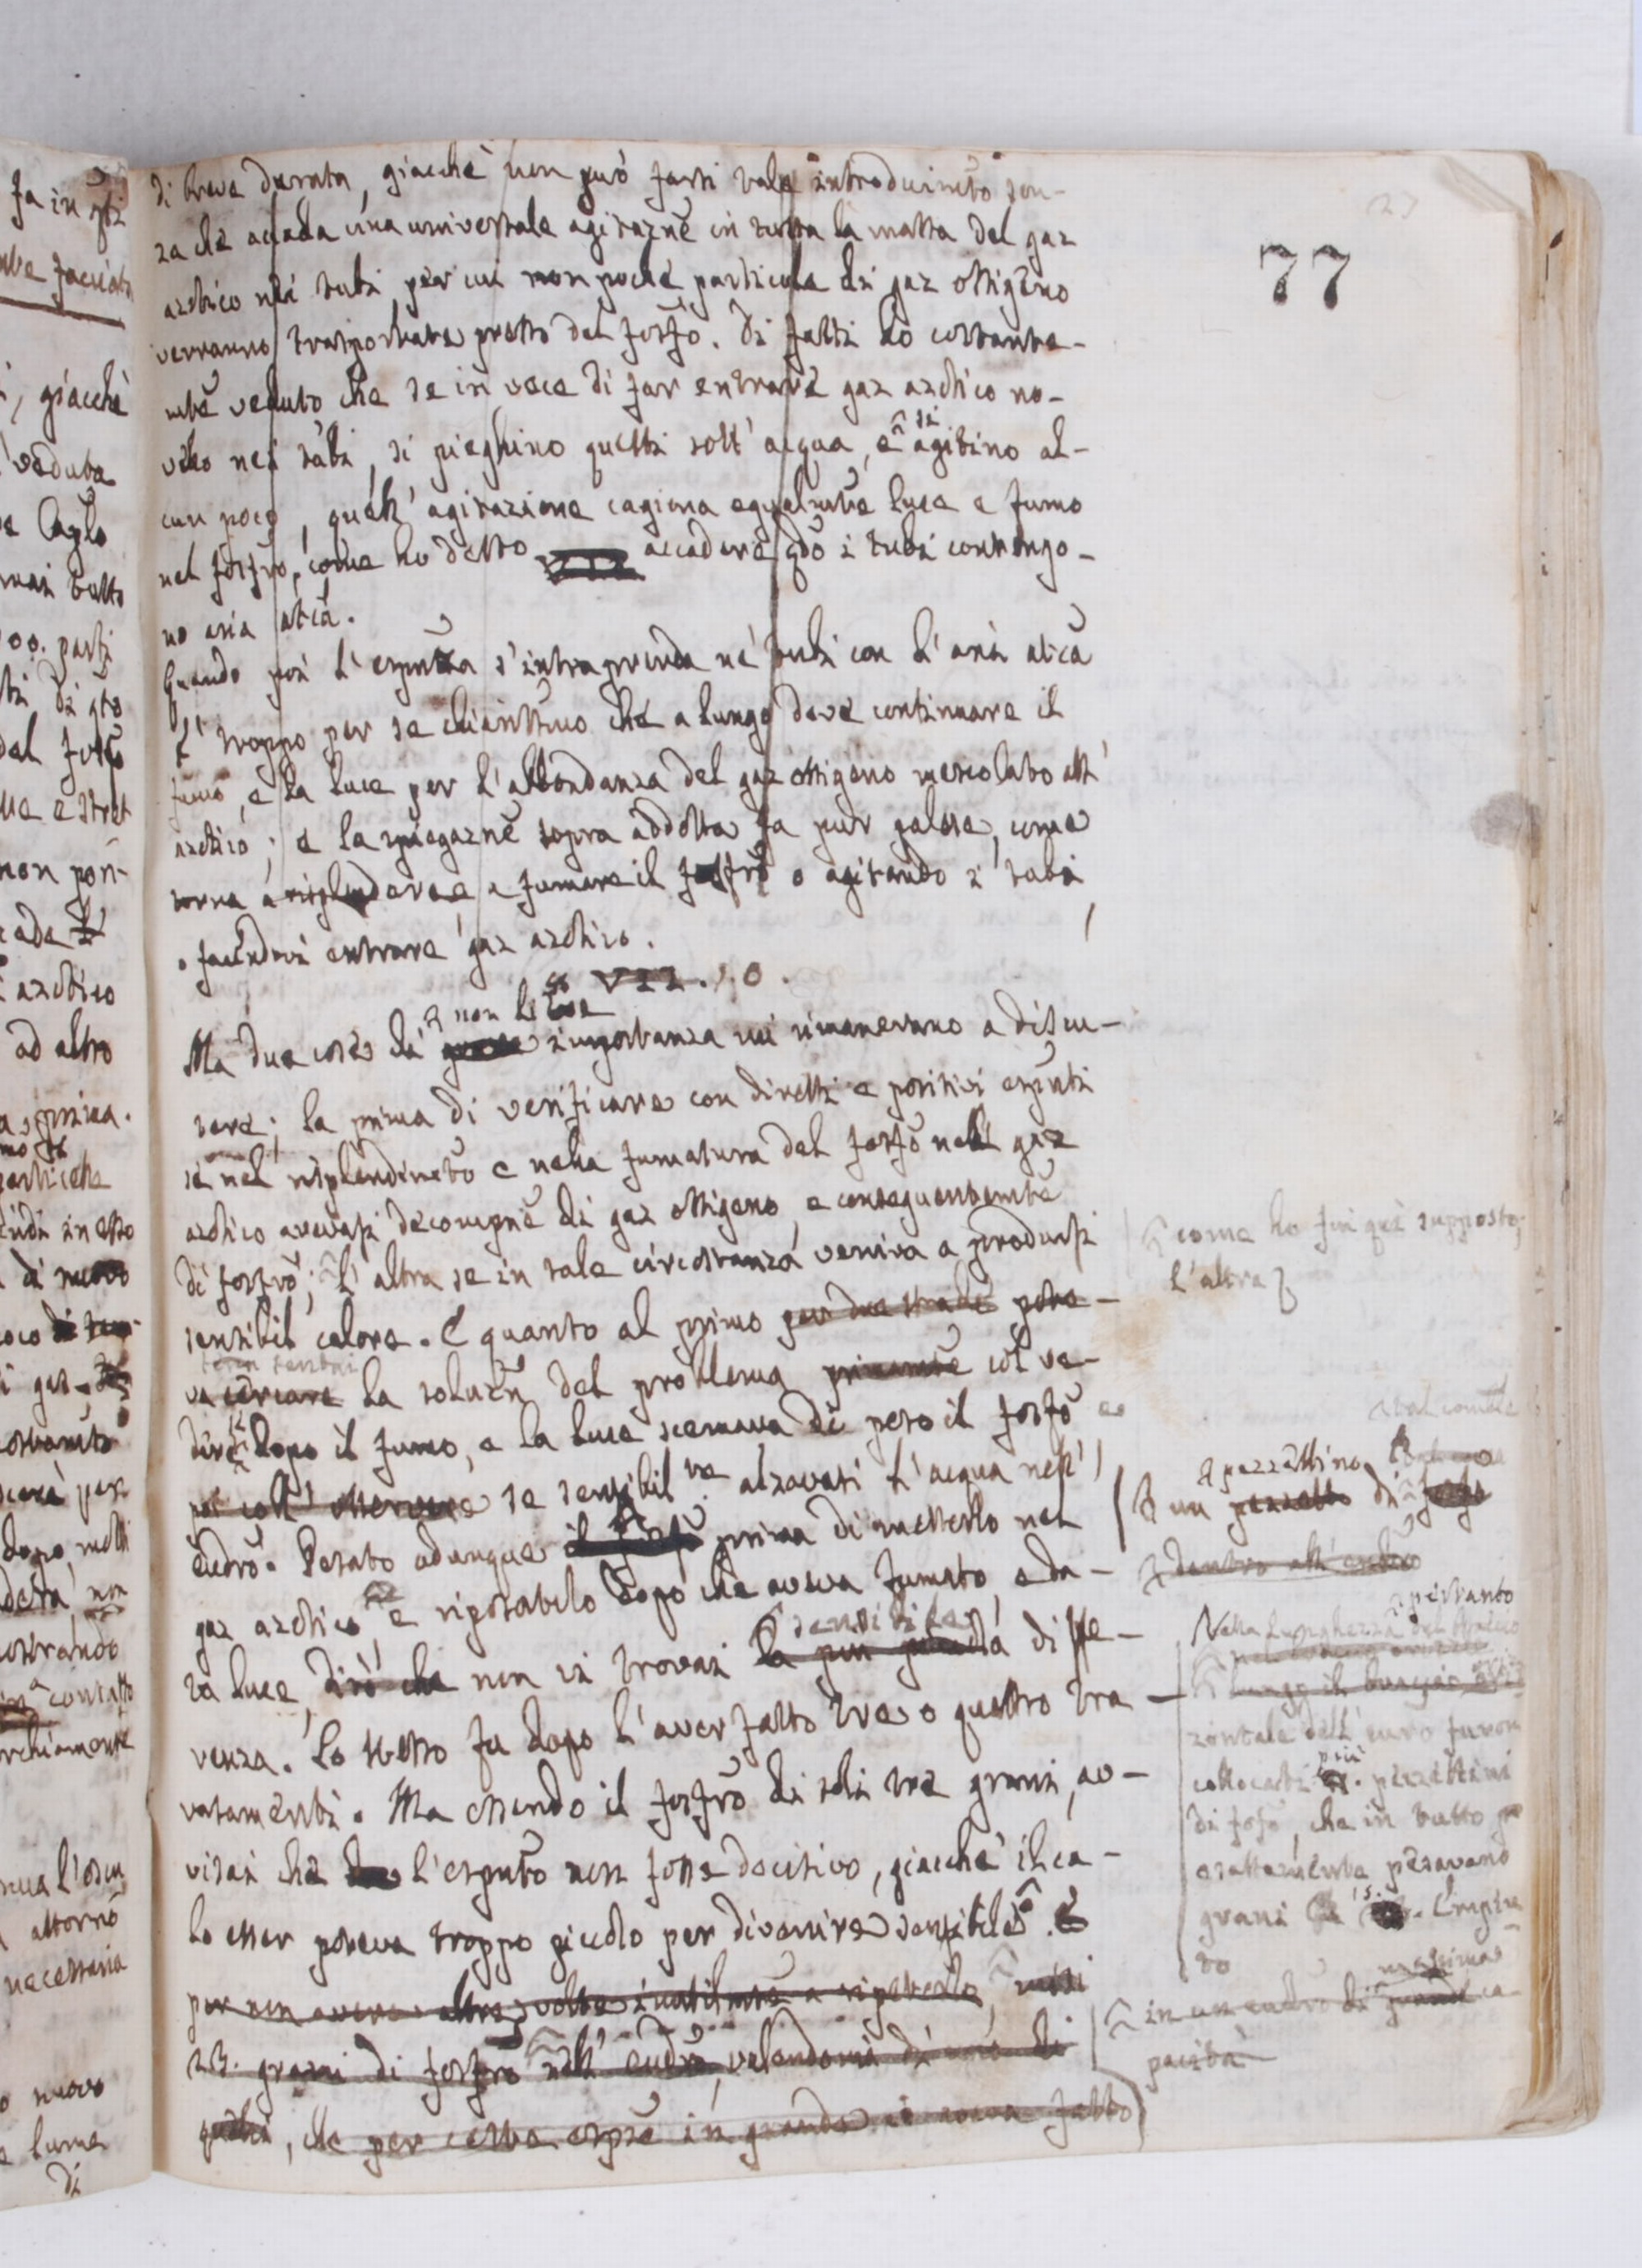 77
di breve durata, giacchè non può farsi tale introducimẽto sen-
za che accada una universale agitaznẽ in tutta la massa del gaz
azotico nei tubi per cui non poche particole di gaz ossigeno
verranno trasportate presso del fosfo. Di fatti ho costante-
mtẽ veduto che se in vece di far entrare gaz azotico no-
vello nei tubi, si pieghino questi sott' acqua, e si agitino al-
cun poco, quest' agitazione cagiona egualmtẽ luce e fumo
nel fosfro, come ho detto accadere qdo i tubi contengo-
no aria atca.
Quando poi l'espmto s'intraprenda ne' tubi con l'aria atca
è troppo per se chiarissimo che a lungo deve continuare il
fumo, e la luce per l'abbondanza del gaz ossigeno mescolato all'
azotico; e la spiegaznẽ sopra addotta fa pur palese, come
torna a risplendere e a fumare il fosfro o agitando i tubi,
o facendovi entrare gaz azotico.
VII.
Ma due cose di non lieve importanza mi rimanevano a discu-
tere; la prima di verificare con diretti e positivi espmti
se nel risplendimto e nella fumatura del fosfo nell gaz
azotico avevasi decompnẽ di gaz ossigeno, e conseguentemtẽ
di fosfro; l'altra se in tale circostanza veniva a prodursi
sensibil calore. E quanto al primo per due strade pote-
va cercare la soluzn del problema primamtẽ col ve-
dere se dopo il fumo, e la luce scemava di peso il fosfo
poi coll' osservare se sensibil te alzavasi l'acqua nell'
eudro. Pesato adunque il fosfo prima di metterlo nel
gaz azotico, e ripesatolo dopo che aveva fumato, e da-
ta luce, dirò che non vi trovai sensibile la più piccola diffe-
renza. Lo stesso fu dopo l'aver fatto tre o quattro tra
vasamenti. Ma essendo il fosfro di soli tre grani, av-
visai che l'espmto non fosse decisivo, giacchè il ca-
lo esser poteva troppo piccolo per divenire sensibile. E
per non avere altre volte inutilmte a ripeterlo, misi
23. grani di fosfro nell' eudro, valendomi di uno di
quelli, che per cotta espze in grande si aveva fatto
come ho fin quì supposto;
l'altra
un pezzettino pezzetto di fosfo
dentro all' eudro
pertanto
Nella lunghezza del braccio
lungo il braccio oriz
zontale dell' euro furon
collocati più pezzettini
di fosfo, che in tutto
esattamente pesavano
grani 15. Empiu
to
in un eudro di massima grande ca-
pacità